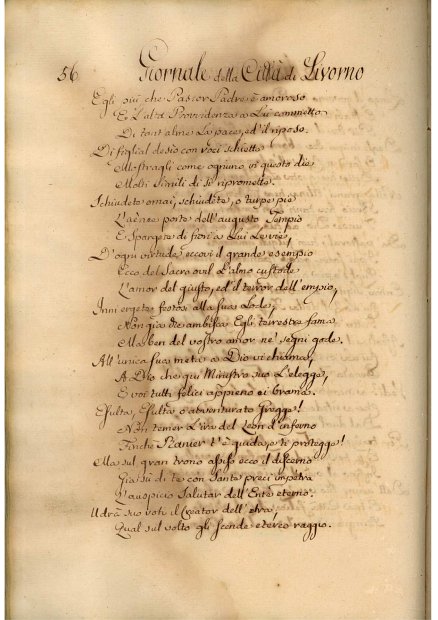 56 Giornale della Città di Livorno
Egli più che Pastor Padre è amoroso
E l'alta Providenza a Lui commette
Di tant'alme la pace, ed il riposo.
Di figlial desio con voci schiette
Mostragli come ognuno in questo die
Molti simili dì si ripromette.
Schiudete omai, schiudete, o turbe pie
L'aenee porte dell'augusto Tempio
E spargete di fiori a Lui le vie,
D'ogni virtude eccovi il grande esempio
Ecco del Sacro ovil l'almo custode
L'amor del giusto, ed il terror dell'empio,
Inni ergete festosi alla sua Lode,
Non già che ambisca Egli terrestre fama
Ma ben del vostro amor ne' segni gode.
All'unica sua meta a Dio vi chiama,
A Dio che qui Ministro suo l'elegge,
E voi tutti felici appieno ei brama.
Esulta, Esulta o avventurato Gregge!
Non temer l'ira del Leon d'inferno
Finchè Ranier t'è guida, e ti protegge!
Ma sul gran trono assiso ecco il discerno
Già sù di te con Sante preci impetra
L'auspicio Salutar dell'Ente eterno.
Udrà suo voti il Creator dell'etra,
Qual sul volto gli scende etereo raggio.